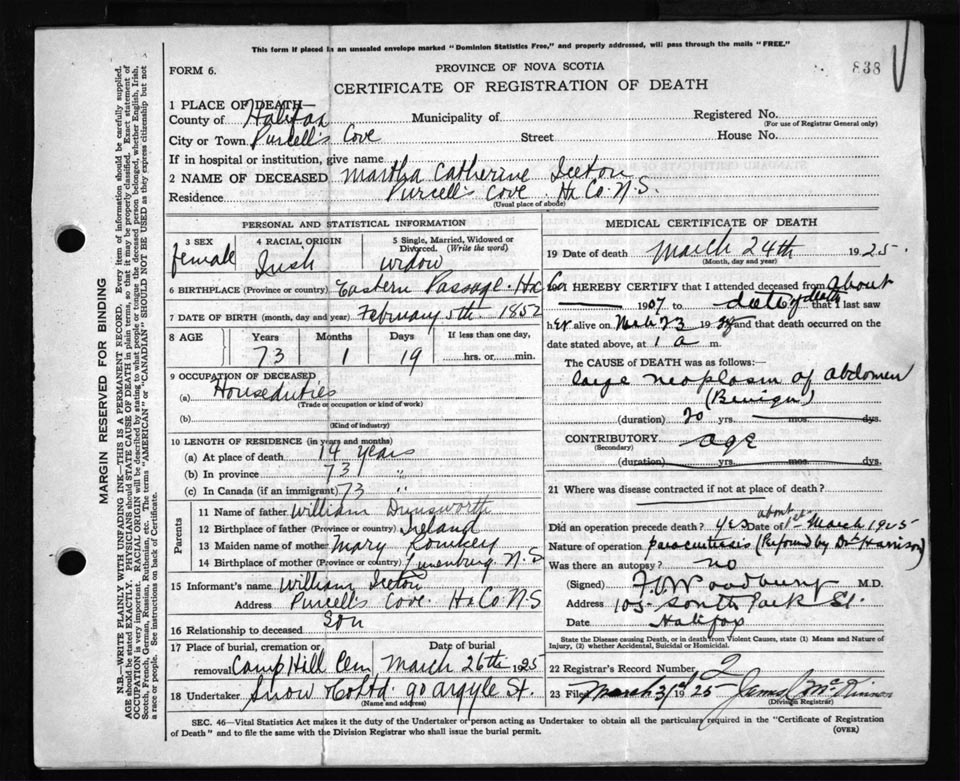 This form if placed in an unsealed envelope marked "Dominion Statistics Free," and properly addressed, will pass through the mails "FREE."
FORM 6.
PROVINCE OF NOVA SCOTIA
838
CERTIFICATE OF REGISTRATION OF DEATH
1 PLACE OF DEATH—
County of Halifax Municipality of Registered No.
(For use of Registrar General only)
City or Town Purcell's Cove Street House No.
If in hospital or institution, give name
2 NAME OF DECEASED Martha Catherine Ieeton
Residence Purcell's Cove Hx Co. N.S.
(Usual place of abode)
PERSONAL AND STATISTICAL INFORMATION
3 SEX 4 RACIAL ORIGIN 5 Single, Married, Widowed or Divorced. (Write the word)
female Irish widow
6 BIRTHPLACE (Province or country) Eastern Passage. Hx Co.
7 DATE OF BIRTH (month, day and year) February 5th. 1852
8 AGE Years Months Days If less than one day,
73 1 19 hrs. or min.
9 OCCUPATION OF DECEASED
(a) Houseduties
(Trade or occupation or kind of work)
(b)
(Kind of industry)
10 LENGTH OF RESIDENCE (in years and months)
(a) At place of death 14 years
(b) In province 73 "
(c) In Canada (if an immigrant) 73 "
Parents
11 Name of father William
12 Birthplace of father (Province or country) Ireland
13 Maiden name of mother Mary Romkey
14 Birthplace of mother (Province or country) Lunenburg. N.S
15 Informant's name William Ieeton
Address Purcell's Cove. Hx Co. N.S
16 Relationship to deceased Son
17 Place of burial, cremation or removal Date of burial
Camp Hill Cem March 26th 1925
18 Undertaker Snow & Co Ltd. 90 Argyle St.
(Name and address)
MEDICAL CERTIFICATE OF DEATH
19 Date of death March 24th 1925.
(Month, day and year)
20 I HEREBY CERTIFY that I attended deceased from About
1907 to date of death, that I last saw
her alive on Mch 23 19 and that death occurred on the
date stated above, at 1 a m.
The CAUSE OF DEATH was as follows:
large neoplasm of abdomen
(Benign)
(duration) 20 yrs. mos. dys.
CONTRIBUTORY age
(Secondary)
(duration) yrs. mos. dys.
21 Where was disease contracted if not at place of death?
Did an operation precede death? yes Date of about 1st March 1925
Nature of operation paracentesis (Reformd by Dr Harrison)
Was there an autopsy? no
(Signed) F.V. Woodbury M.D.
Address 105 South Park St.
Date Halifax
State the Disease causing Death, or in death from Violent Causes, state (1) Means and Nature of Injury, (2) whether Accidental, Suicidal or Homicidal.
22 Registrar's Record Number 2
23 Filed March 31st 1925 James McKinnon
(Division Registrar)
SEC. 46—Vital Statistics Act makes it the duty of the Undertaker or person acting as Undertaker to obtain all the particulars required in the "Certificate of Registration
of Death" and to file the same with the Division Registrar who shall issue the burial permit.
(OVER)
MARGIN RESERVED FOR BINDING
N.B.—WRITE PLAINLY WITH UNFADING INK—THIS IS A PERMANENT RECORD. Every item of information should be carefully supplied.
AGE should be stated EXACTLY. PHYSICIANS should STATE CAUSE OF DEATH in plain terms, so that it may be properly classified. Exact statement of
OCCUPATION is very important. RACIAL ORIGIN will be described by stating to what people or tongue the deceased person belonged, whether English, Irish,
Scotch, French, German, Russian, Ruthenian, etc. The terms "AMERICAN" or "CANADIAN" SHOULD NOT BE USED as they express citizenship but not
a race or people. See instructions on back of Certificate.